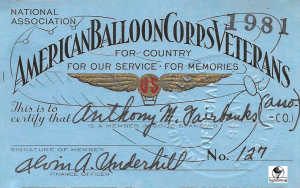 NATIONAL
ASSOCIATION
1981
AMERICAN BALLOON CORPS VETERANS
FOR COUNTRY
FOR OUR SERVICE - FOR MEMORIES
US
This is to
certify that Anthony M. Fairbanks
(ANO-
CO.)
IS A MEMBER IN GOOD STANDING
SIGNATURE OF MEMBER
Alvin A. Underhill
No. 127
FINANCE OFFICER